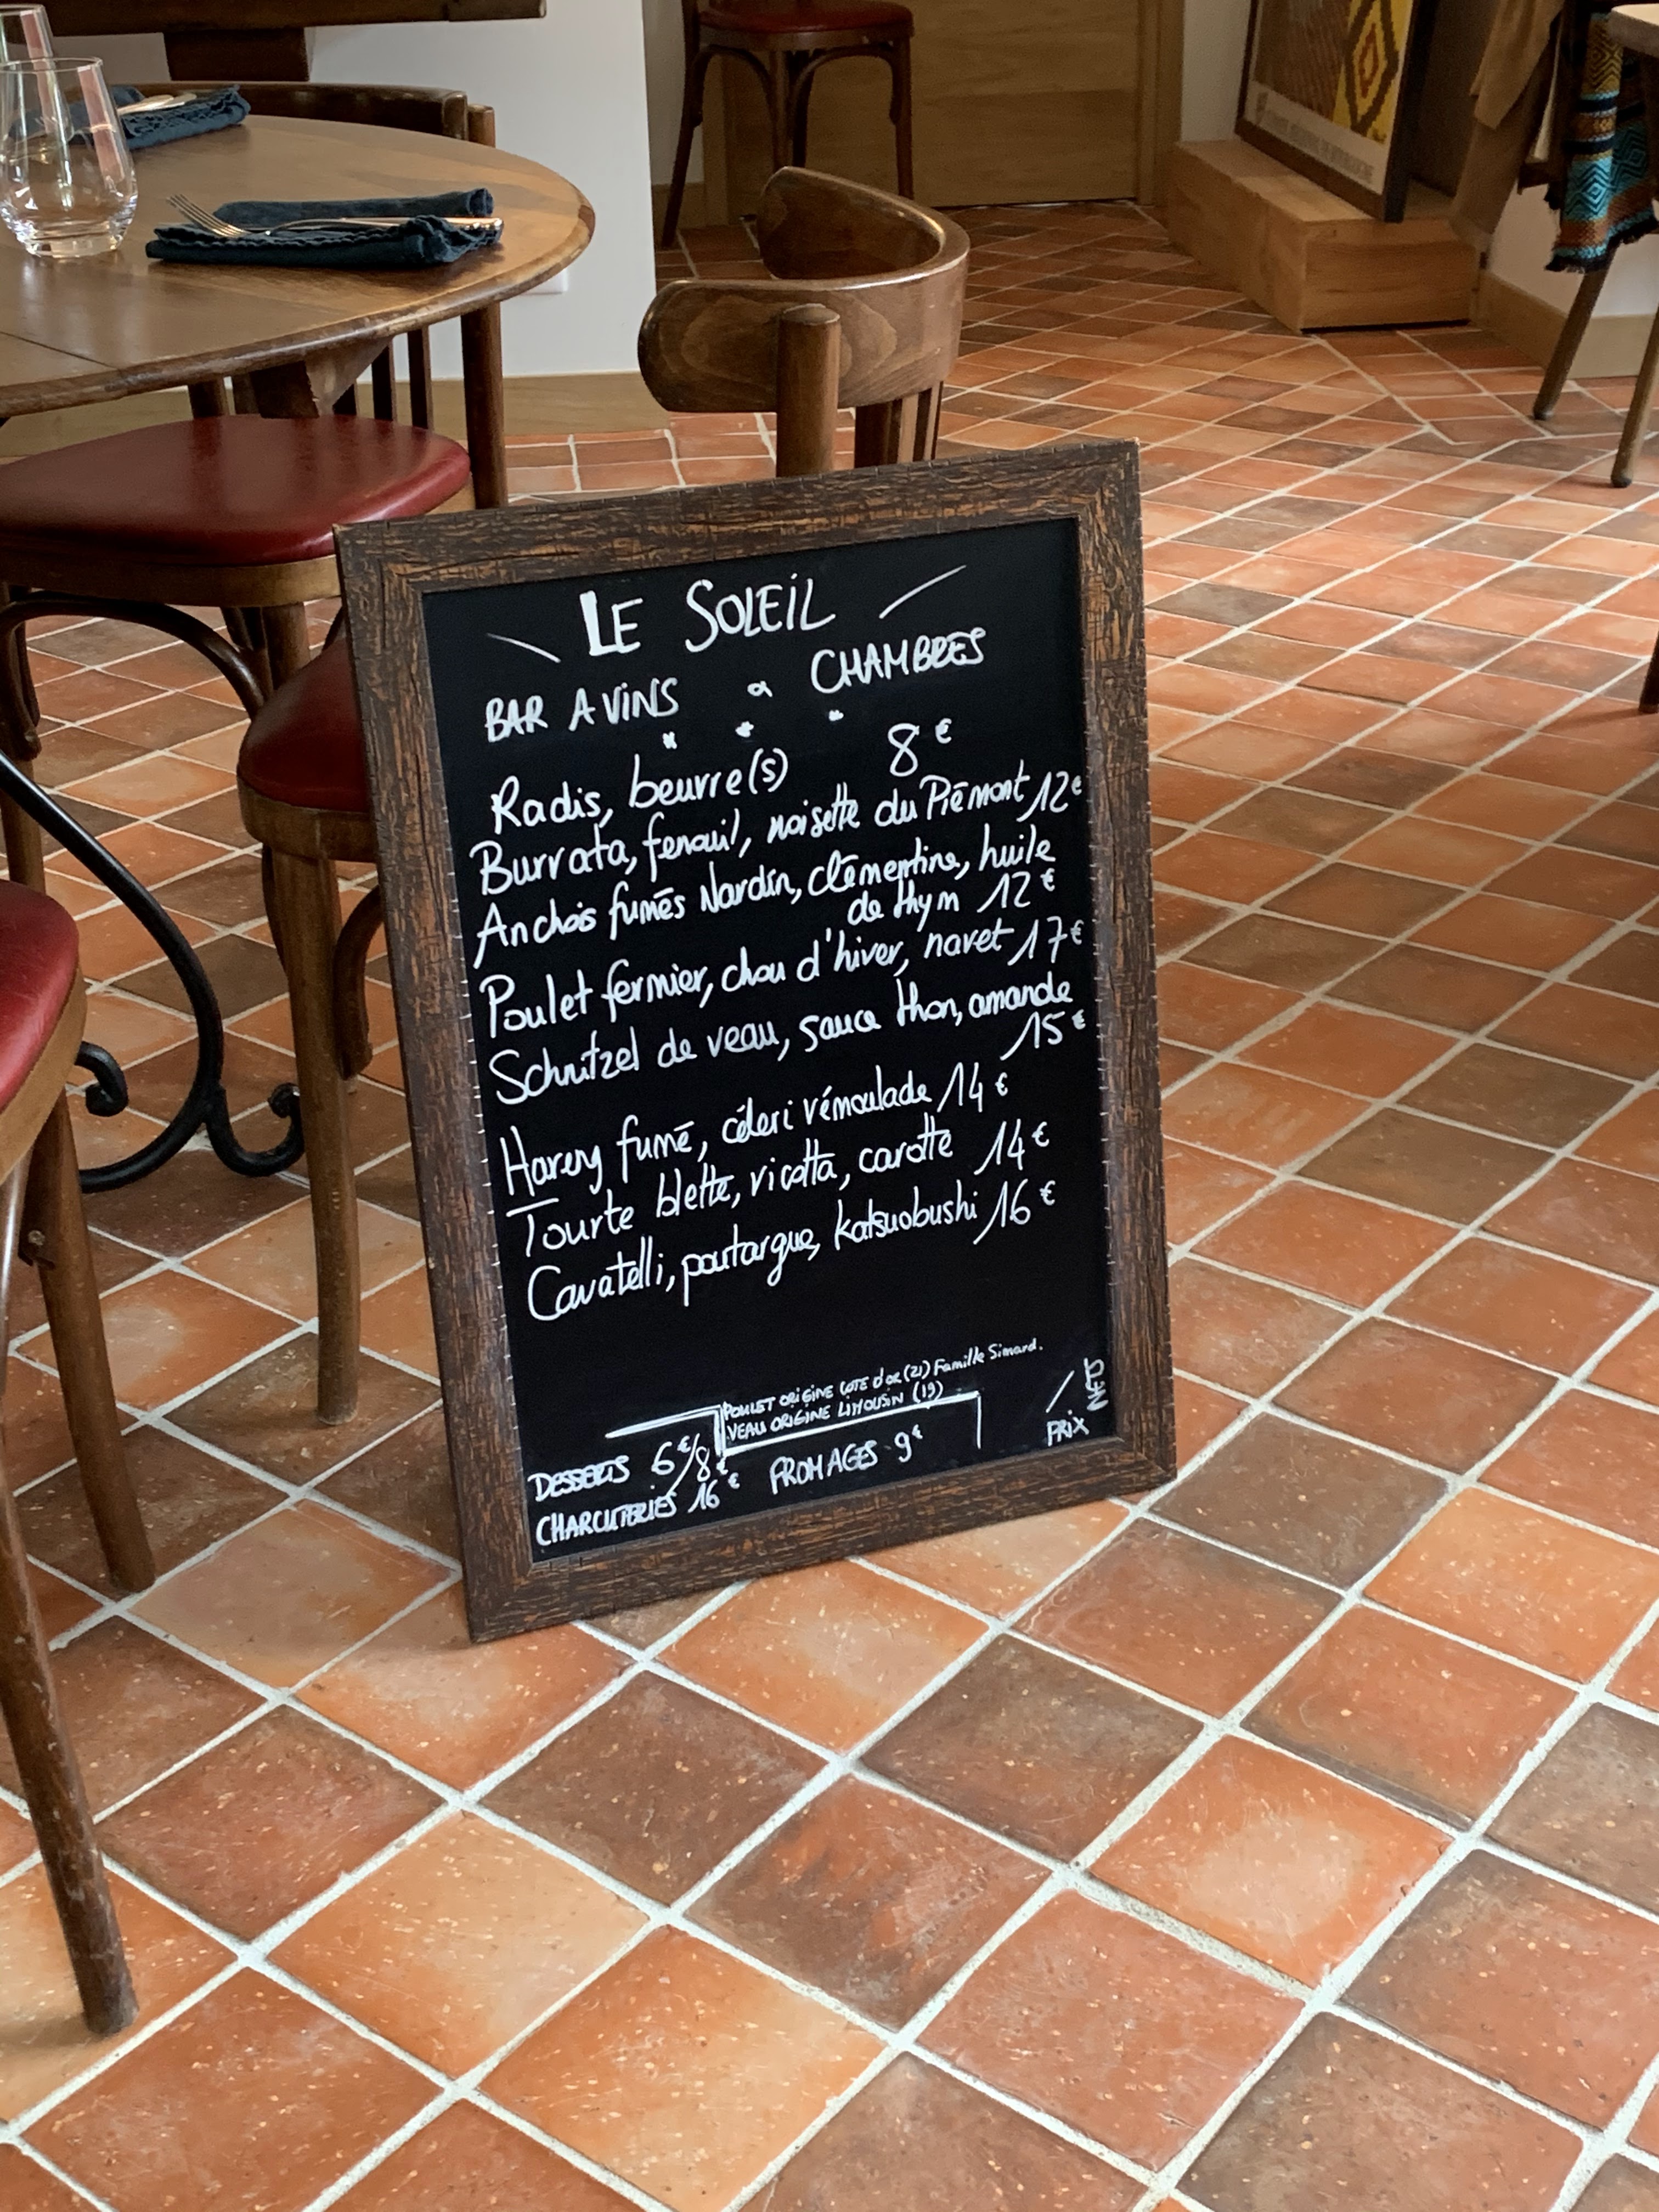 LE SOLEIL
BAR A VINS & CHAMBRES
Radis, beurre(s) 8€
Burrata, fenouil, noisette du Piémont 12€
Anchois fumés Nardin, clémentine, huile
de thym 12€
Poulet fermier, chou d'hiver, navet 17€
Schnitzel de veau, sauce thon, amande
15€
Hareng fumé, céleri rémoulade 14€
Tourte blette, ricotta, carotte 14€
Cavatelli, poutargue, katsuobushi 16€
POULET ORIGINE COTE d'OR (21) Famille Simard.
VEAU ORIGINE LIMOUSIN (19)
DESSERTS 6€/8€ FROMAGES 9€
CHARCUTERIES 16€
PRIX
NETS